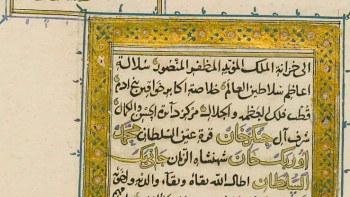 الی خزانة الملك المؤید المظفر المنصور سلالة
اعاظم سلاطین العالم خلاصة اکابر خواقین بنی آدم
قطب فلك العظمه والجلالت مرکز دائرة الحسن والکمال
شرف آل چنگیز خان قرة عین السلطان محمد
اوزبك خان شهنشاه الزمان جانی بك
السلطان اطال الله بقاه